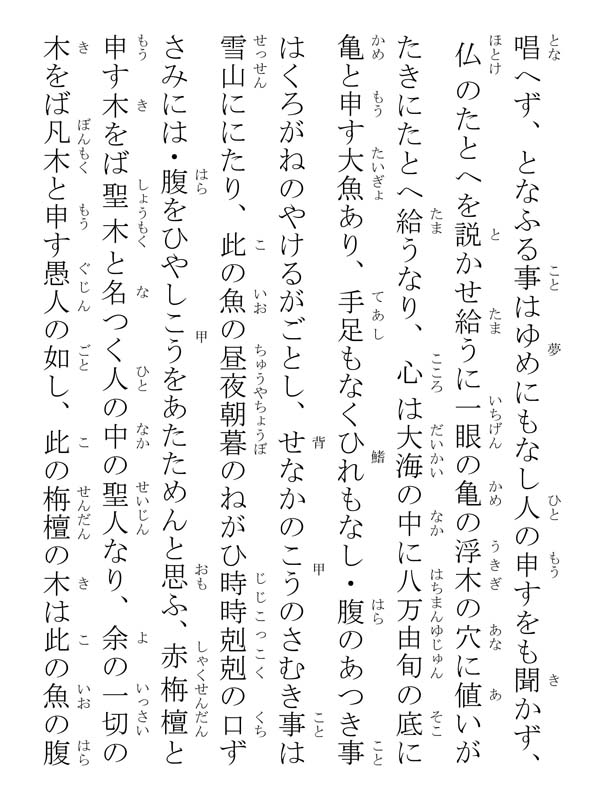 唱へず、となふる事はゆめにもなし人の申すをも聞かず、
仏のたとへを説かせ給うに一眼の亀の浮木の穴に値いが
たきにたとへ給うなり、心は大海の中に八万由旬の底に
亀と申す大魚あり、手足もなくひれもなし・腹のあつき事
はくろがねのやけるがごとし、せなかのこうのさむき事は
雪山ににたり、此の魚の昼夜朝暮のねがひ時時剋剋の口ず
さみには・腹をひやしこうをあたためんと思ふ、赤栴檀と
申す木をば聖木と名つく人の中の聖人なり、余の一切の
木をば凡木と申す愚人の如し、此の栴檀の木は此の魚の腹